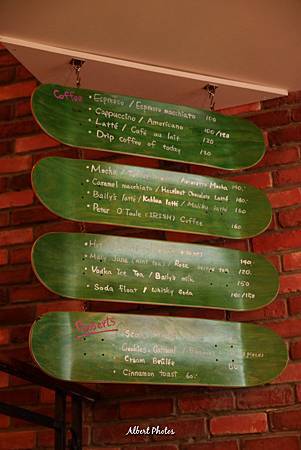 Coffee • Espresso / Espresso macchiato 100
• Cappuccino / Americano 100/120
• Latté / Café au lait 120
• Drip coffee of today 120
• Mocha / Mocha 140.-
• Caramel macchiato / Hazelnut Chocolate Latté 160
• Baily's latté / Kahlua latté / Malibu latté 160
• Peter O'Toole (IRISH) Coffee 160
140
• Mary Jane (mint tea) / Rose tea 120
• Vodka Ice Tea / Baily's milk 150
• Soda float / Whisky soda 100/150
Desserts
Cookies - Oatmeal / pieces
Cream Brulée 80
• Cinnamon toast 60.-
Albert Photos